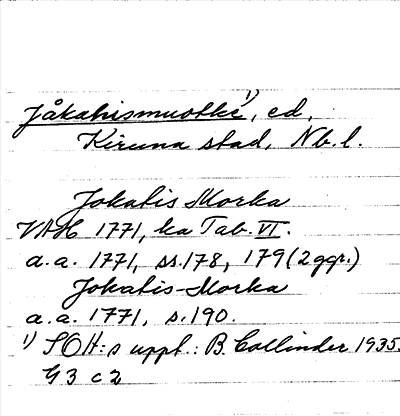 Jåkahismuotke¹⁾, ed,
Kiruna stad, Nb.l.
Jokalis Morka
VAH 1771, ka Tab. VI.
a.a. 1771, ss. 178, 179 (2 ggr.)
Jokalis-Morka
a.a. 1771, s. 190.
¹⁾ SOH:s uppt.: B. Collinder 1935.
G3 c2